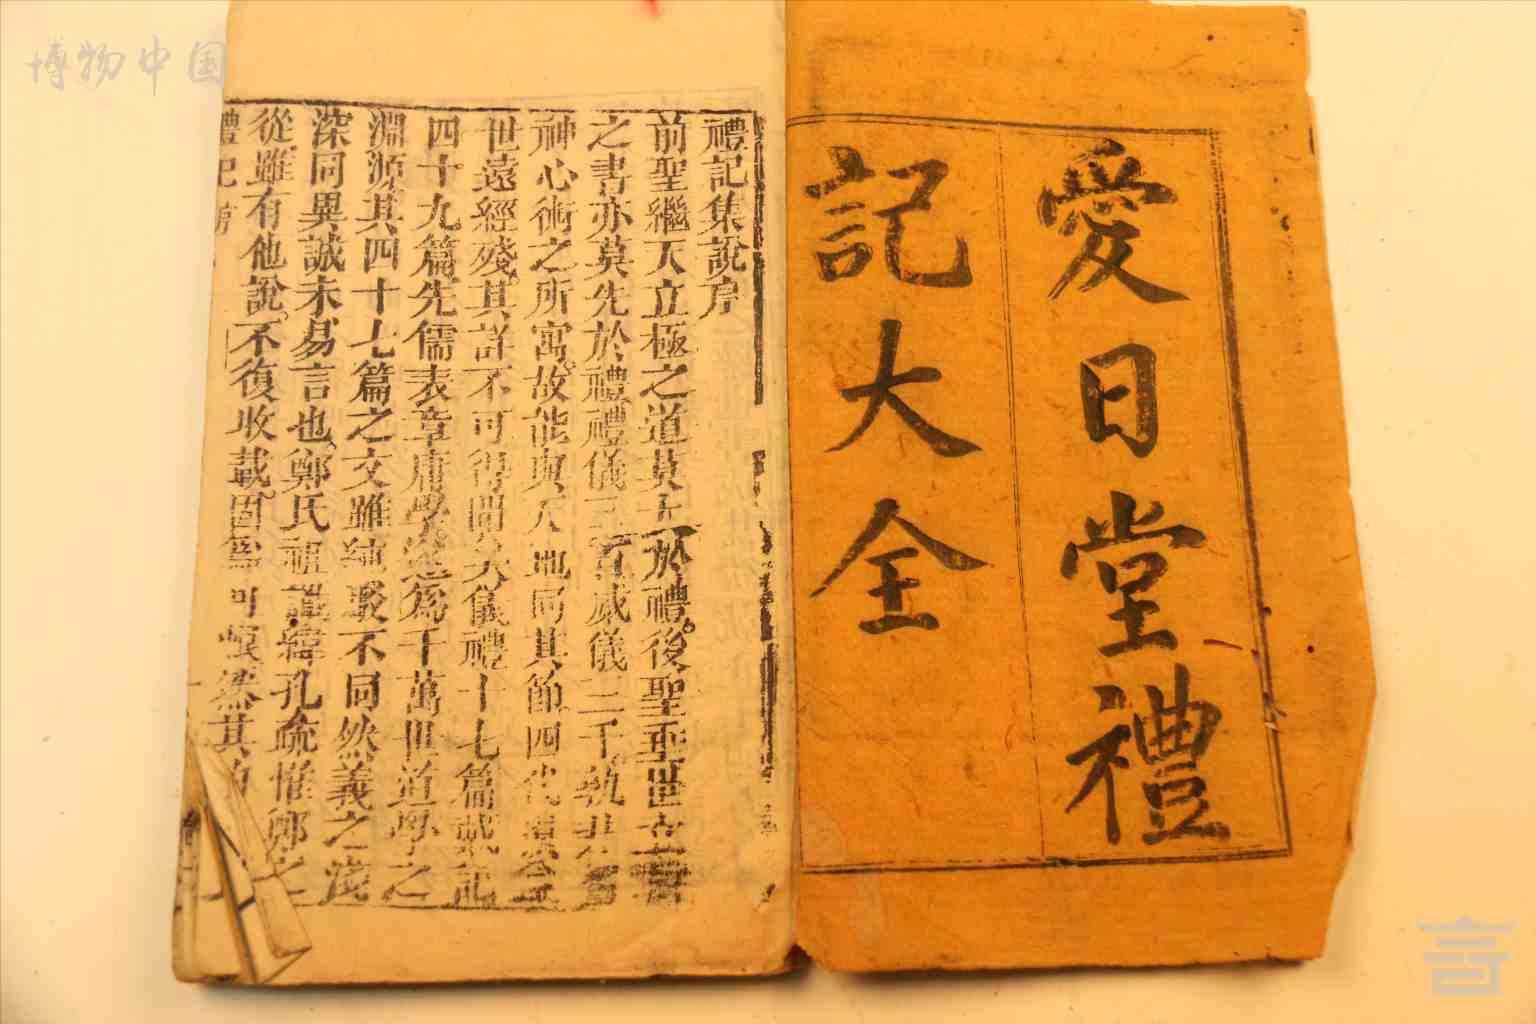 博物中国
愛日堂禮
記大全
禮記集說序
前聖繼天立極之道莫大於禮後聖垂世立
之書亦莫先於禮禮儀三百威儀三千孰非
神心術之所寓故能與天地同其節四代
世遠經殘其詳不可得聞矣儀禮十七篇戴記
四十九篇先儒表章庸學遂為千萬世道學之
淵源其四十七篇之文雖純駁不同然義之淺
深同異誠未易言也鄭氏祖讖緯孔疏惟鄭之
從雖有他說不復收載固為可恨然其
禮記序